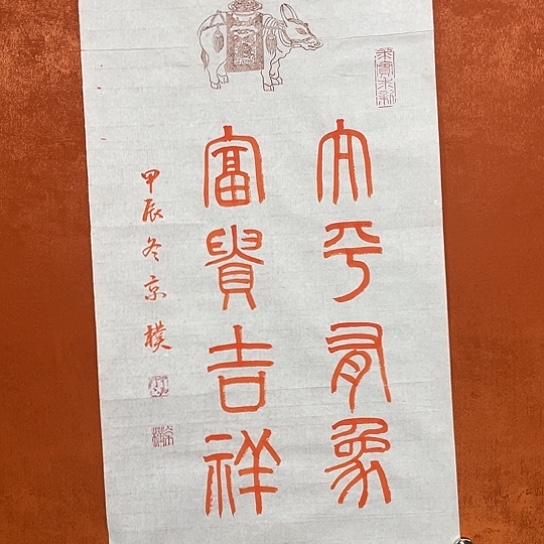 太平有象
富貴吉祥
甲辰冬京樸